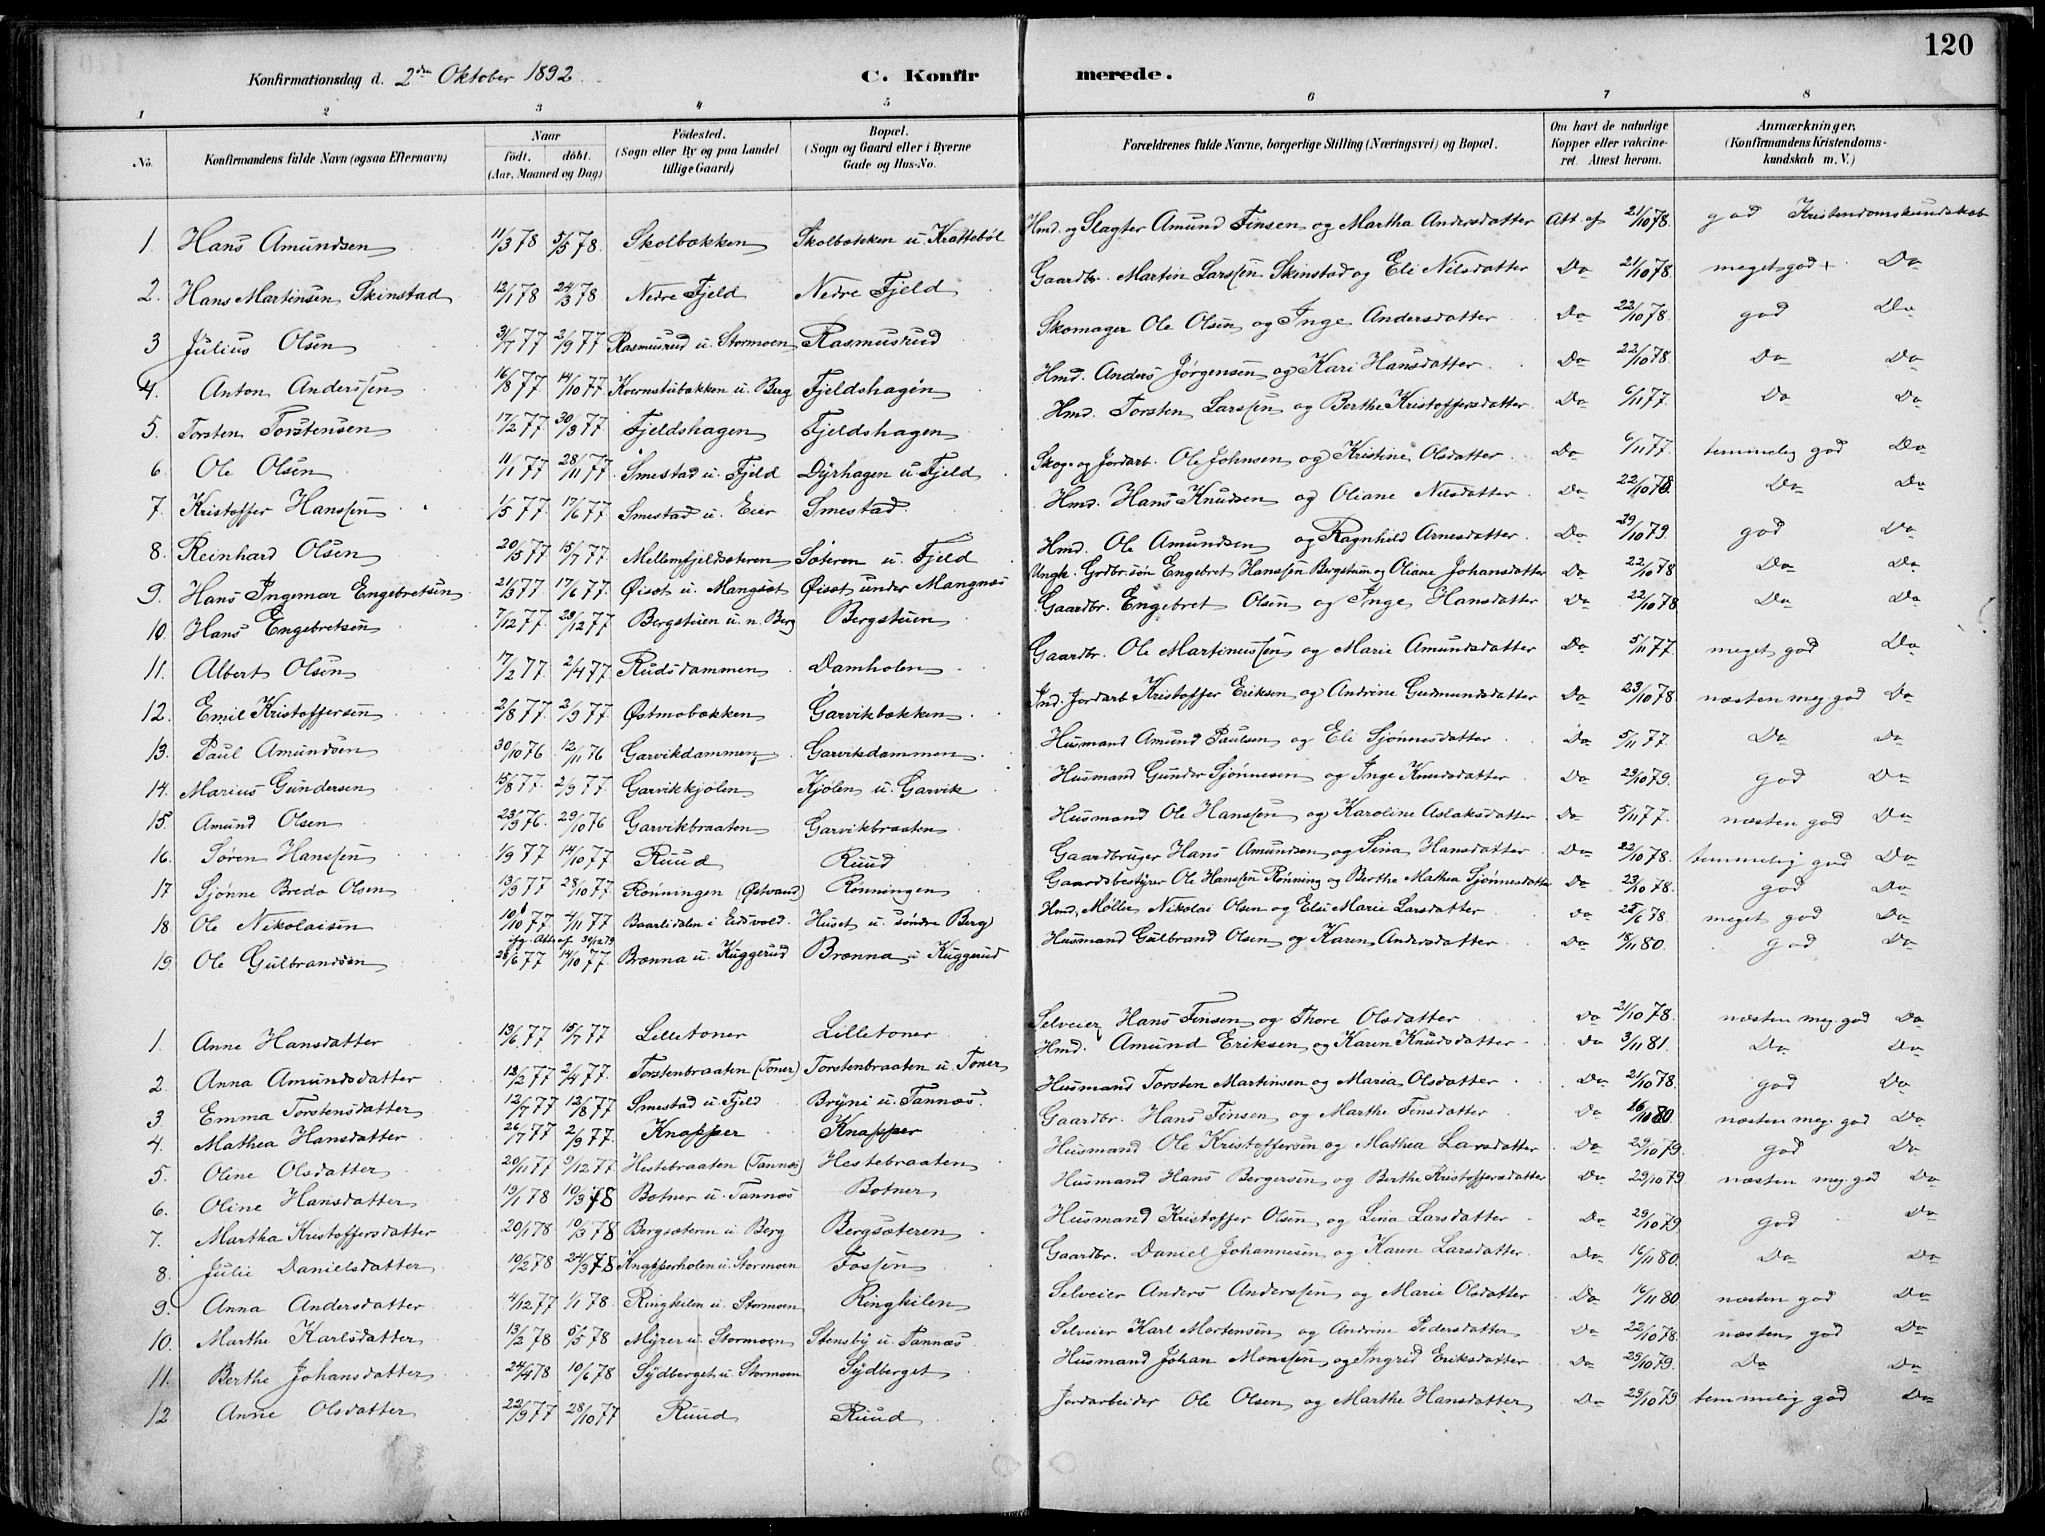 120
Konfirmationsdag d. 2den Oktober 1892. C. Konfirmerede.
1 2 3 4 5 6 7 8
No. Konfirmandens fulde Navn (ogsaa Efternavn) Naar født, døbt. (Aar, Maaned og Dag) Fødested. (Sogn eller By og paa Landet tillige Gaard) Bopæl. (Sogn og Gaard eller i Byerne Gade og Hus-No. Forældrenes fulde Navne, borgerlige Stilling (Næringsvei) og Bopæl. Om havt de naturlige Kopper eller vakcineret. Attest herom. Anmærkninger. (Konfirmandens Kristendomskundskab m. V.)
1. Hans Amundsen 11/3 78 5/5 78. Skolbækken Skolbækken u. Krattebøl Hmd. og Slagter Amund Finsen og Martha Andersdatter Att. af 21/10 78. god Kristendomskundskab
2. Hans Martinsen Skinstad 12/1 78 24/3 78 Nedre Fjeld Nedre Fjeld Gaardbr. Martin Larssen Skinstad og Eli Nilsdatter Do 21/10 78 meget god + Do
3 Julius Olsen 31/7 77 2/9 77 Rasmusrud u. Stormoen Rasmusrud Skomager Ole Olsen og Inge Andersdatter Do 22/10 78. god Do
4. Anton Anderssen 16/8 77. 14/10 77 Kvernstubakken u. Berg Fjeldshagen Hmd. Anders Jørgensen og Kari Hansdatter. Do 22/10 78 Do Do
5. Torsten Torstensen 17/2 77 30/3 77 Fjeldshagen Fjeldshagen Hmd. Torsten Larssen og Berthe Kristoffersdatter. Do 6/11 77. Do Do
6. Ole Olsen 11/1 77 28/11 77. Smestad u. Fjeld Dyrhagen u. Fjeld Skog- og Jordarb. Ole Johnsen og Kristine Olsdatter. Do 6/11 77. temmelig god Do
7. Kristoffer Hanssen 1/5 77. 17/6 77 Smestad u. Eier Smestad. Hmd. Hans Knudsen og Oliane Nilsdatter. Do 22/10 78. Do Do
8. Reinhard Olsen 20/5 77 15/7 77 Mellemfjeldsæteren Sæteren u. Fjeld Hmd. Ole Amundsen og Ragnhild Arnesdatter. Do 29/10 79. god Do
9. Hans Ingemar Engebretsen 21/3 77 17/6 77. Øiset u. Mangset Øiset under Mangnæs Ungk. Grdbr.søn Engebret Hanssen Bergstuen og Oliane Johansdatter Do 22/10 78 Do Do
10. Hans Engebretsen 7/12 77. 29/12 77 Bergstuen u. n. Berg Bergstuen Gaardbr. Engebret Olsen og Inge Hansdatter Do 22/10 78 Do Do
11. Albert Olsen 17/2 77. 2/4 77 Rudsdammen Damholen Gaardbr. Ole Martinussen og Marie Amundsdatter Do 5/11 77. meget god Do
12. Emil Kristoffersen 2/8 77. 2/9 77 Østmobakken Garvikbakken Ind. Jordarb Kristoffer Eriksen og Andrine Gudmundsdatter Do 23/10 78 næsten meg. god Do
13. Paul Amundsen 30/10 76. 12/11 76 Garvikdammen Garvikdammen Husmand Amund Paulsen og Eli Sjønnesdatter Do 5/11 77. Do Do
14. Marius Gundersen 15/8 77. 2/9 77. Garvikkjølen Kjølen u. Garvik Husmand Gunder Sjønnesen og Inge Knudsdatter Do 29/10 79. god Do
15. Amund Olsen 23/9 76. 29/10 76 Garvikbraaten Garvikbraaten Husmand Ole Hanssen og Karoline Aslaksdatter Do 5/11 77. næsten god Do
16. Søren Hanssen 1/9 77 14/10 77 Ruud Ruud Gaardbruger Hans Amundsen og Lina Hansdatter Do 22/10 78. temmelig god Do
17 Sjønne Bredo Olsen 13/9 77 28/10 77 Rønningen (Østvand) Rønningen Gaardsbestyrer Ole Hanssen Rønning og Berthe Mathea Sjønnesdatter Do 23/10 78. god Do
18. Ole Nikolaisen 10/10 77 4/11 77 Baarlidalen i Eidsvold. Huset u. søndre Berg Hmd. Møller Nikolai Olsen og Elen Marie Larsdatter Do 28/6 78. meget god Do
ifg. Att. af 30/12 79
19. Ole Gulbrandsen 28/6 77 14/10 77. Brænna u. Kuggerud Brænna u. Kuggerud Husmand Gulbrand Olsen og Karen Andersdatter Do 18/11 80. god Do
1. Anne Hansdatter 13/6 77. 15/7 77 Lilletoner Lilletoner Selveier Hans Finsen og Thore Olsdatter Do 21/10 78. næsten meg. god Do
2. Anna Amundsdatter 12/2 77 2/4 77. Torstenbraaten (Toner) Torstenbraaten u. Toner Hmd. Amund Eriksen og Karen Knudsdatter Do 3/11 81. Do Do
3 Emma Torstensdatter 12/7 77 12/8 77 Smestad u. Fjeld Bryni u. Tannæs. Husmand Torsten Martinsen og Maria Olsdatter Do 21/10 78. god Do
4. Mathea Hansdatter 26/7 77 2/9 77. Knapper Knapper Gaardbr. Hans Finsen og Marthe Finsdatter Do 16/11 80. næsten meg. god Do
5. Oline Olsdatter 20/11 77 9/12 77. Hestebraaten (Tannæs) Hestebraaten Husmand Ole Kristoffersen og Mathea Larsdatter Do 29/10 79. god Do
6. Oline Hansdatter 19/1 78 10/3 78 Botner u. Tannæs Botner Husmand Hans Bergersen og Berthe Kristoffersdatter Do 29/10 79 næsten meg. god Do
7. Martha Kristoffersdatter 20/1 78 10/3 78 Bergsæteren u. Berg Bergsæteren Husmand Kristoffer Olsen og Lina Larsdatter Do 29/10 79 god Do
8. Julie Danielsdatter 10/2 78 24/3 78 Knapperholen u. Stormoen Fossen Gaardbr. Daniel Johannesen og Karen Larsdatter Do 16/11 80. Do Do
9. Anna Andersdatter 4/12 77 1/1 78. Ringkilen u. Stormoen Ringkilen Selveier Anders Anderssen og Marie Olsdatter Do 16/11 80 næsten god Do
10. Marthe Karlsdatter 13/2 78 5/5 78 Myrer u. Stormoen Stensby u. Tannæs. Selveier Karl Mortensen og Andrine Pedersdatter Do 22/10 78. næsten god Do
11. Berthe Johansdatter 24/4 78 10/6 78 Sydberget u. Stormoen Sydberget Husmand Johan Monssen og Ingrid Eriksdatter Do 29/10 79. Do Do
12 Anne Olsdatter 22/9 77 28/10 77 Ruud Ruud Jordarbeider Ole Olsen og Marthe Hansdatter Do 29/10 79 temmelig god Do